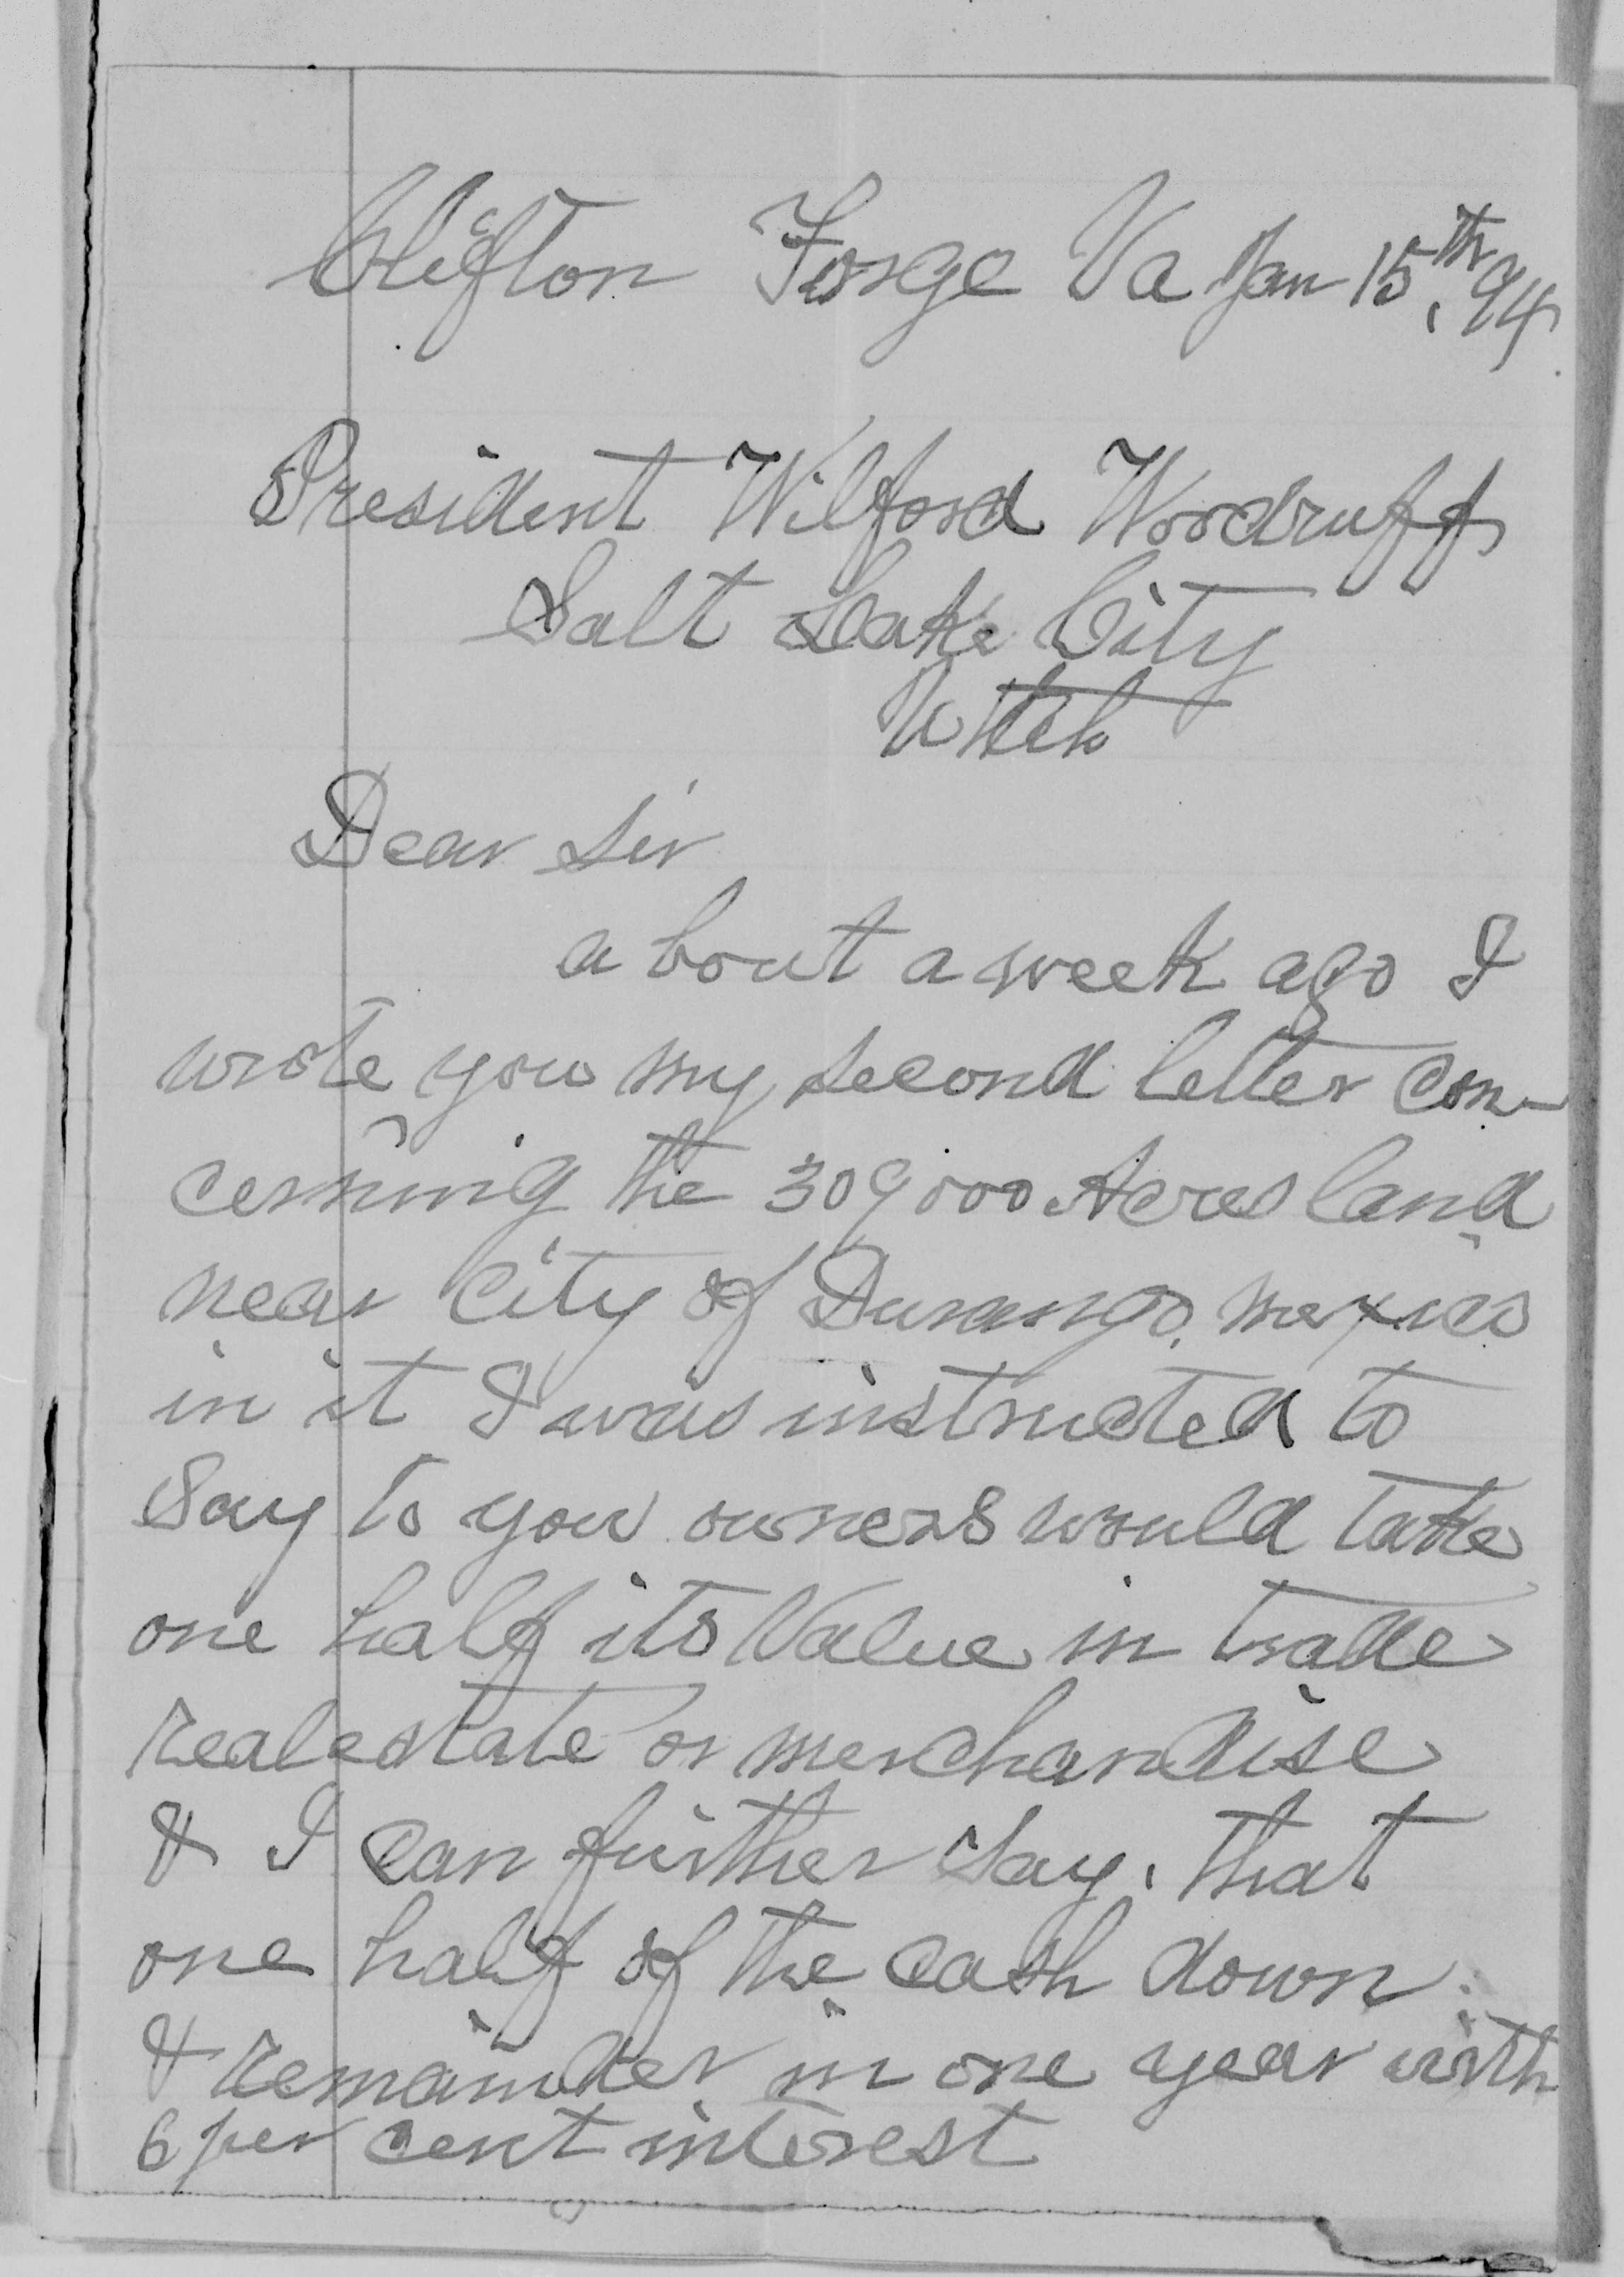 Clifton Forge Va Jan 15th, 94
President Wilford Woodruff
Salt Lake City
Utah
Dear Sir
about a week ago I
wrote you my second letter con-
cerning the 309000 Acres land
near City of Durango, mexico
in it I was instructed to
Say to you owners would take
one half its Value in trade
real estate or merchandise
& I can further say, that
one half of the cash down
& remainder in one year with
6 per cent interest